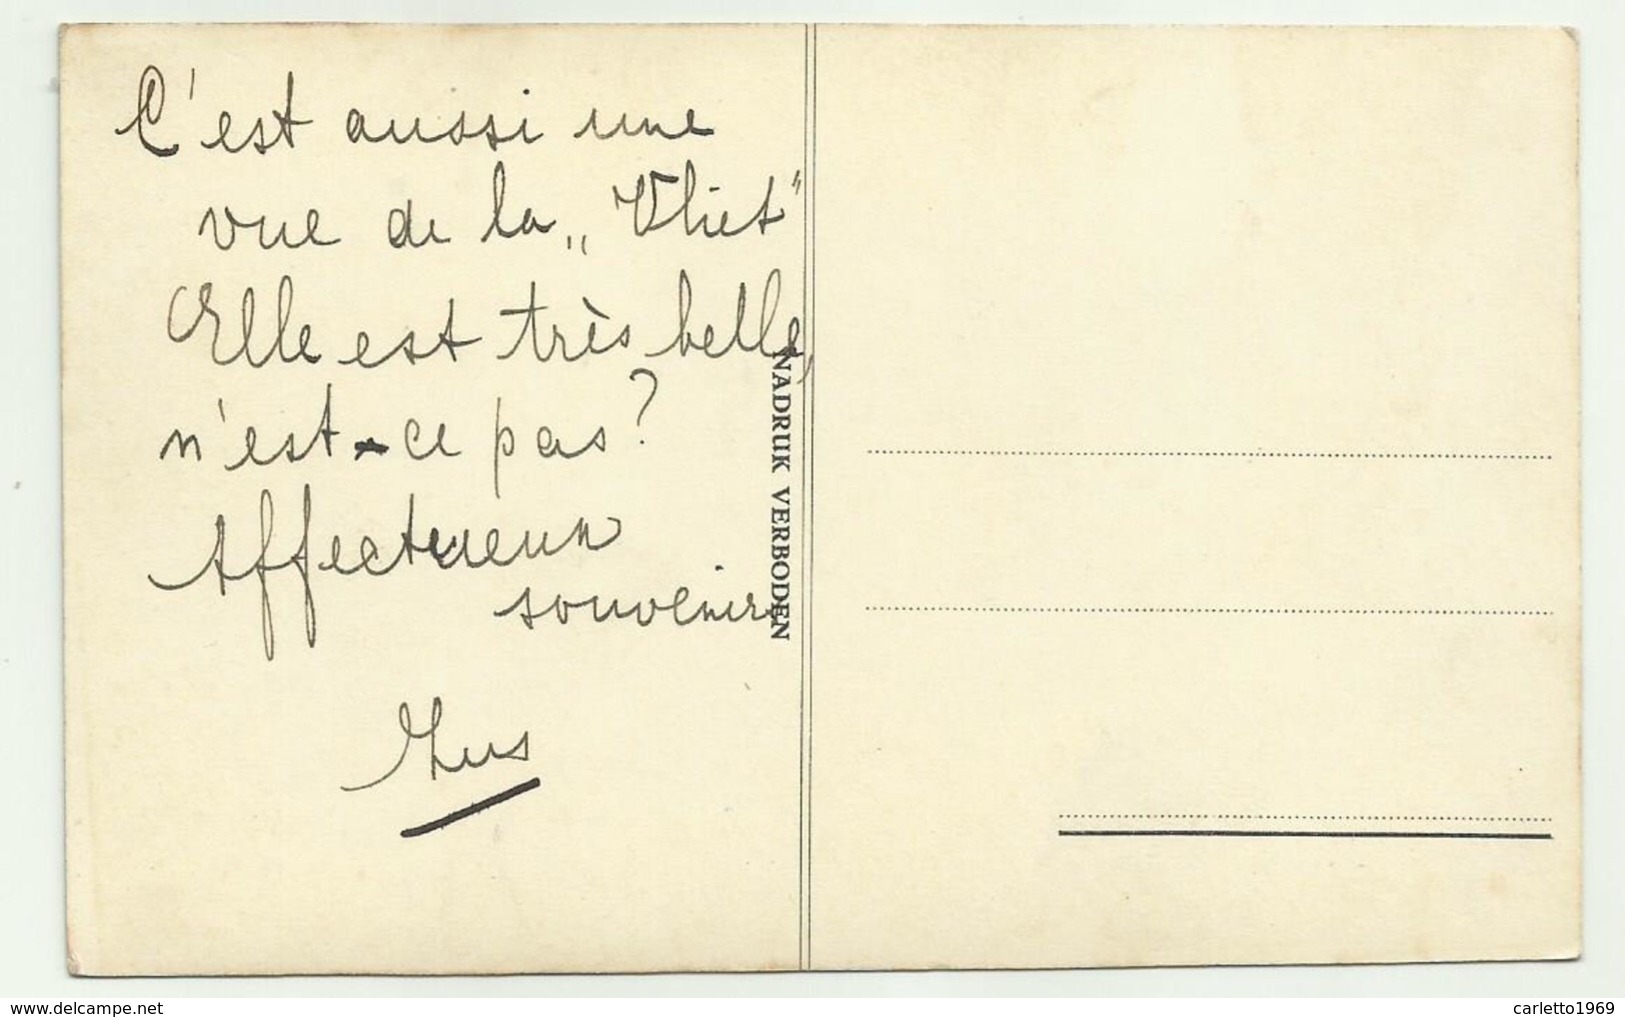 C'est aussi une
vue de la „Vliet"
Elle est très belle,
n'est-ce pas?
Affectueux
souvenirs
NADRUK VERBODEN
delcampe.net
carletto1969